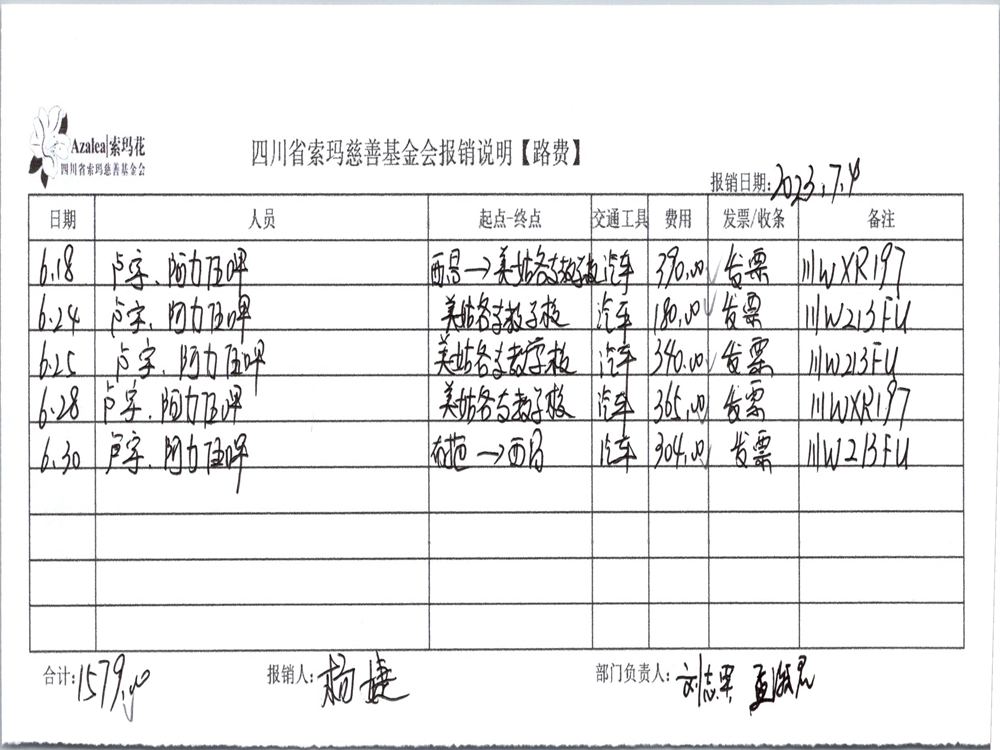 Azalea|索玛花
四川省索玛慈善基金会
四川省索玛慈善基金会报销说明【路费】
报销日期:2023.7.4
日期 人员 起点-终点 交通工具 费用 发票/收条 备注
6.18 卢宇、阿力伍呷 西昌→美姑各支教学校 汽车 390.00 发票 川WXR197
6.24 卢宇、阿力伍呷 美姑各支教学校 汽车 180.00 发票 川W213FU
6.25 卢宇、阿力伍呷 美姑各支教学校 汽车 340.00 发票 川W213FU
6.28 卢宇、阿力伍呷 美姑各支教学校 汽车 365.00 发票 川WXR197
6.30 卢宇、阿力伍呷 →西昌 汽车 304.00 发票 川W213FU
合计:1579.00 报销人:杨捷 部门负责人:刘志军